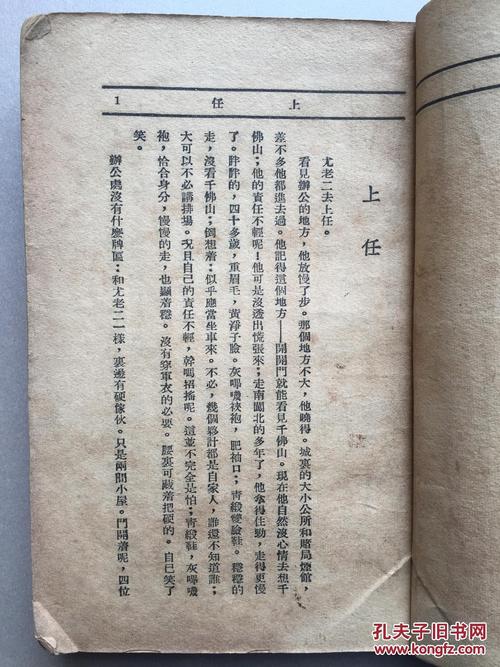 上任
1
上任
尤老二去上任。
看見辦公的地方,他放慢了步。那個地方不大,他曉得。城裏的大小公所和賭局煙館,
差不多他都進去過。他記得這個地方——開開門就能看見千佛山。現在他自然沒心情去想千
佛山;他的責任不輕呢!他可是沒透出慌張來;走南闖北的多年了,他拿得住勁,走得更慢
了。胖胖的,四十多歲,重眉毛,黃淨子臉。灰嗶嘰夾袍,肥袖口;青緞雙臉鞋。穩穩的
走,沒看千佛山;倒想着:似乎應當坐車來。不必,幾個夥計都是自家人,誰還不知道誰;
大可以不必講排場。況且自己的責任不輕,幹嗎招搖呢。這並不完全是怕;青緞鞋,灰嗶嘰
袍,恰合身分,慢慢的走,也顯着穩。沒有穿軍衣的必要。腰裏可藏着把硬的。自己笑了
笑。
辦公處沒有什麽牌匾:和尤老二一樣,裏邊有硬傢伙。只是兩間小屋。門開着呢,四位
孔夫子旧书网
www.kongfz.com